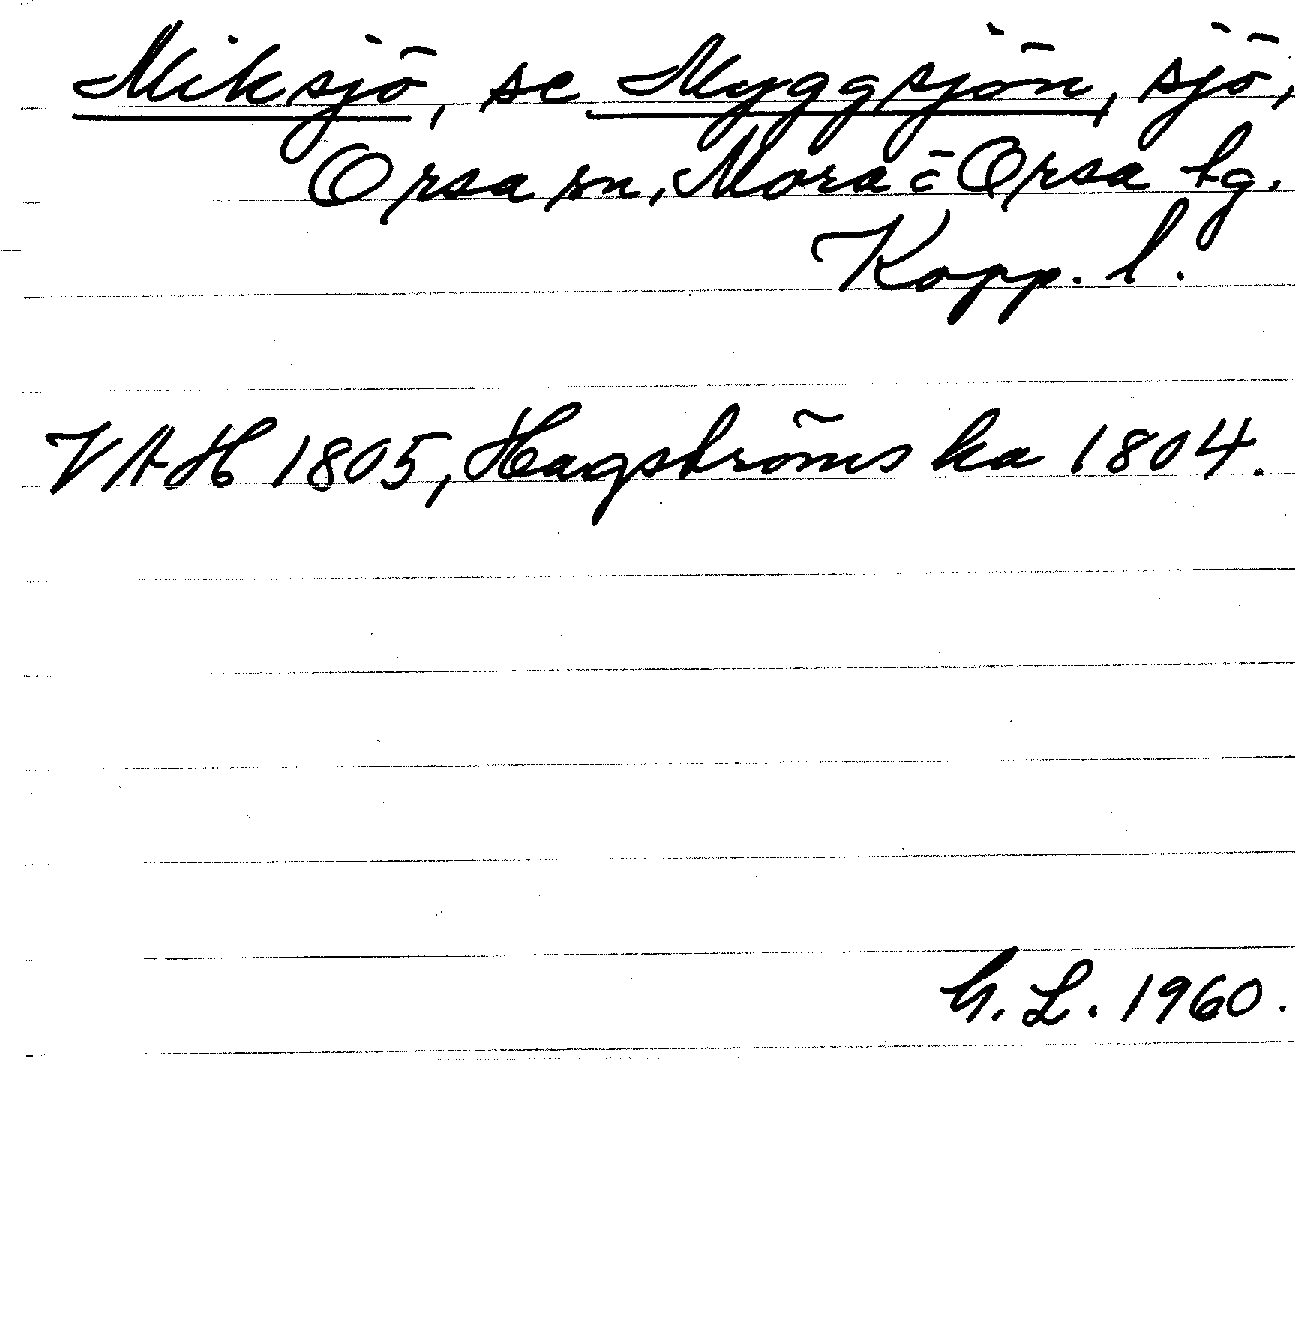 Miksjö, se Myggsjön, sjö,
Orsa sn, Mora o Orsa tg.
Kopp. l.
VAH 1805, Hagströms ka 1804.
G. L. 1960.